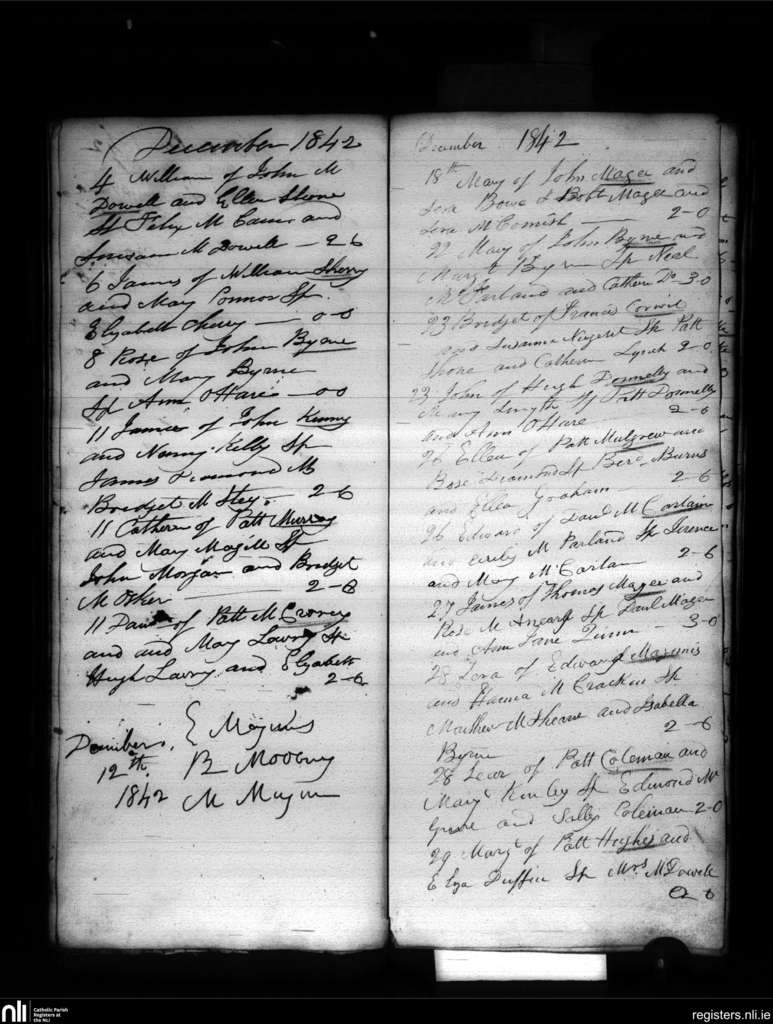 December 1842
4 William of John M
Dowell and Ellen Shone
Sp Felix M and
Susan M Dowell — 2-6
6 James of William Sherry
and Mary Connor Sp
Elyabeth Cherry — 0-0
8 Rose of John Byrne
and Mary Byrne
Sp Ann O Hare — 00
11 James of John Kenny
and Nanny Kelly Sp
James Diamond M
Bridget M — 2-6
11 Catherin of Patt Murray
and Mary Magill Sp
John Morgan and Bridget
M Osker — 2-6
11 of Patt M
and and Mary Lawry Sp
Hugh Lavry and Elyabeth
2-6
E Maginis
12th B Mooney
1842 M
December 1842
18th Mary of John Magee and
Bowe Sp Robt Magee and
M Comish — 2-0
22 Mary of John Byrne and
Margt Byrn Sp Neal
Mc Farland and Cathern Do - 3-0
23 Bridget of Francis
and Susanna Nugent Sp Patt
Shone and Catherin Lynch 2-0
23 John of Hugh Donnelly and
Mary Smyth Sp Patt Donnelly
and Ann O Hare — 2-6
26 Ellen of Patt Mulgrew and
Rose Diamond Sp Berd Burns
and Ellen Graham — 2-6
26 Edward of Danl M Cartain
and M Parland Sp Terence
and Mary M Cartan — 2-6
27 James of Thomas Magee and
Rose M Sp Danl Magee
and Ann Jane Quinn — 3-0
28 of Edward Maginis
and Hanna M Cracken Sp
Matthew M Sheane and Isabella
Byrne 2-6
28 of Patt Coleman and
Margt Kinley Sp Edmond Mc
and Sally Coleman 2-0
29 Margt of Patt Hughes and
Elya Duffin Sp Mrs M Dowell
2 6
nli
Catholic Parish
Registers at
the NLI
registers.nli.ie